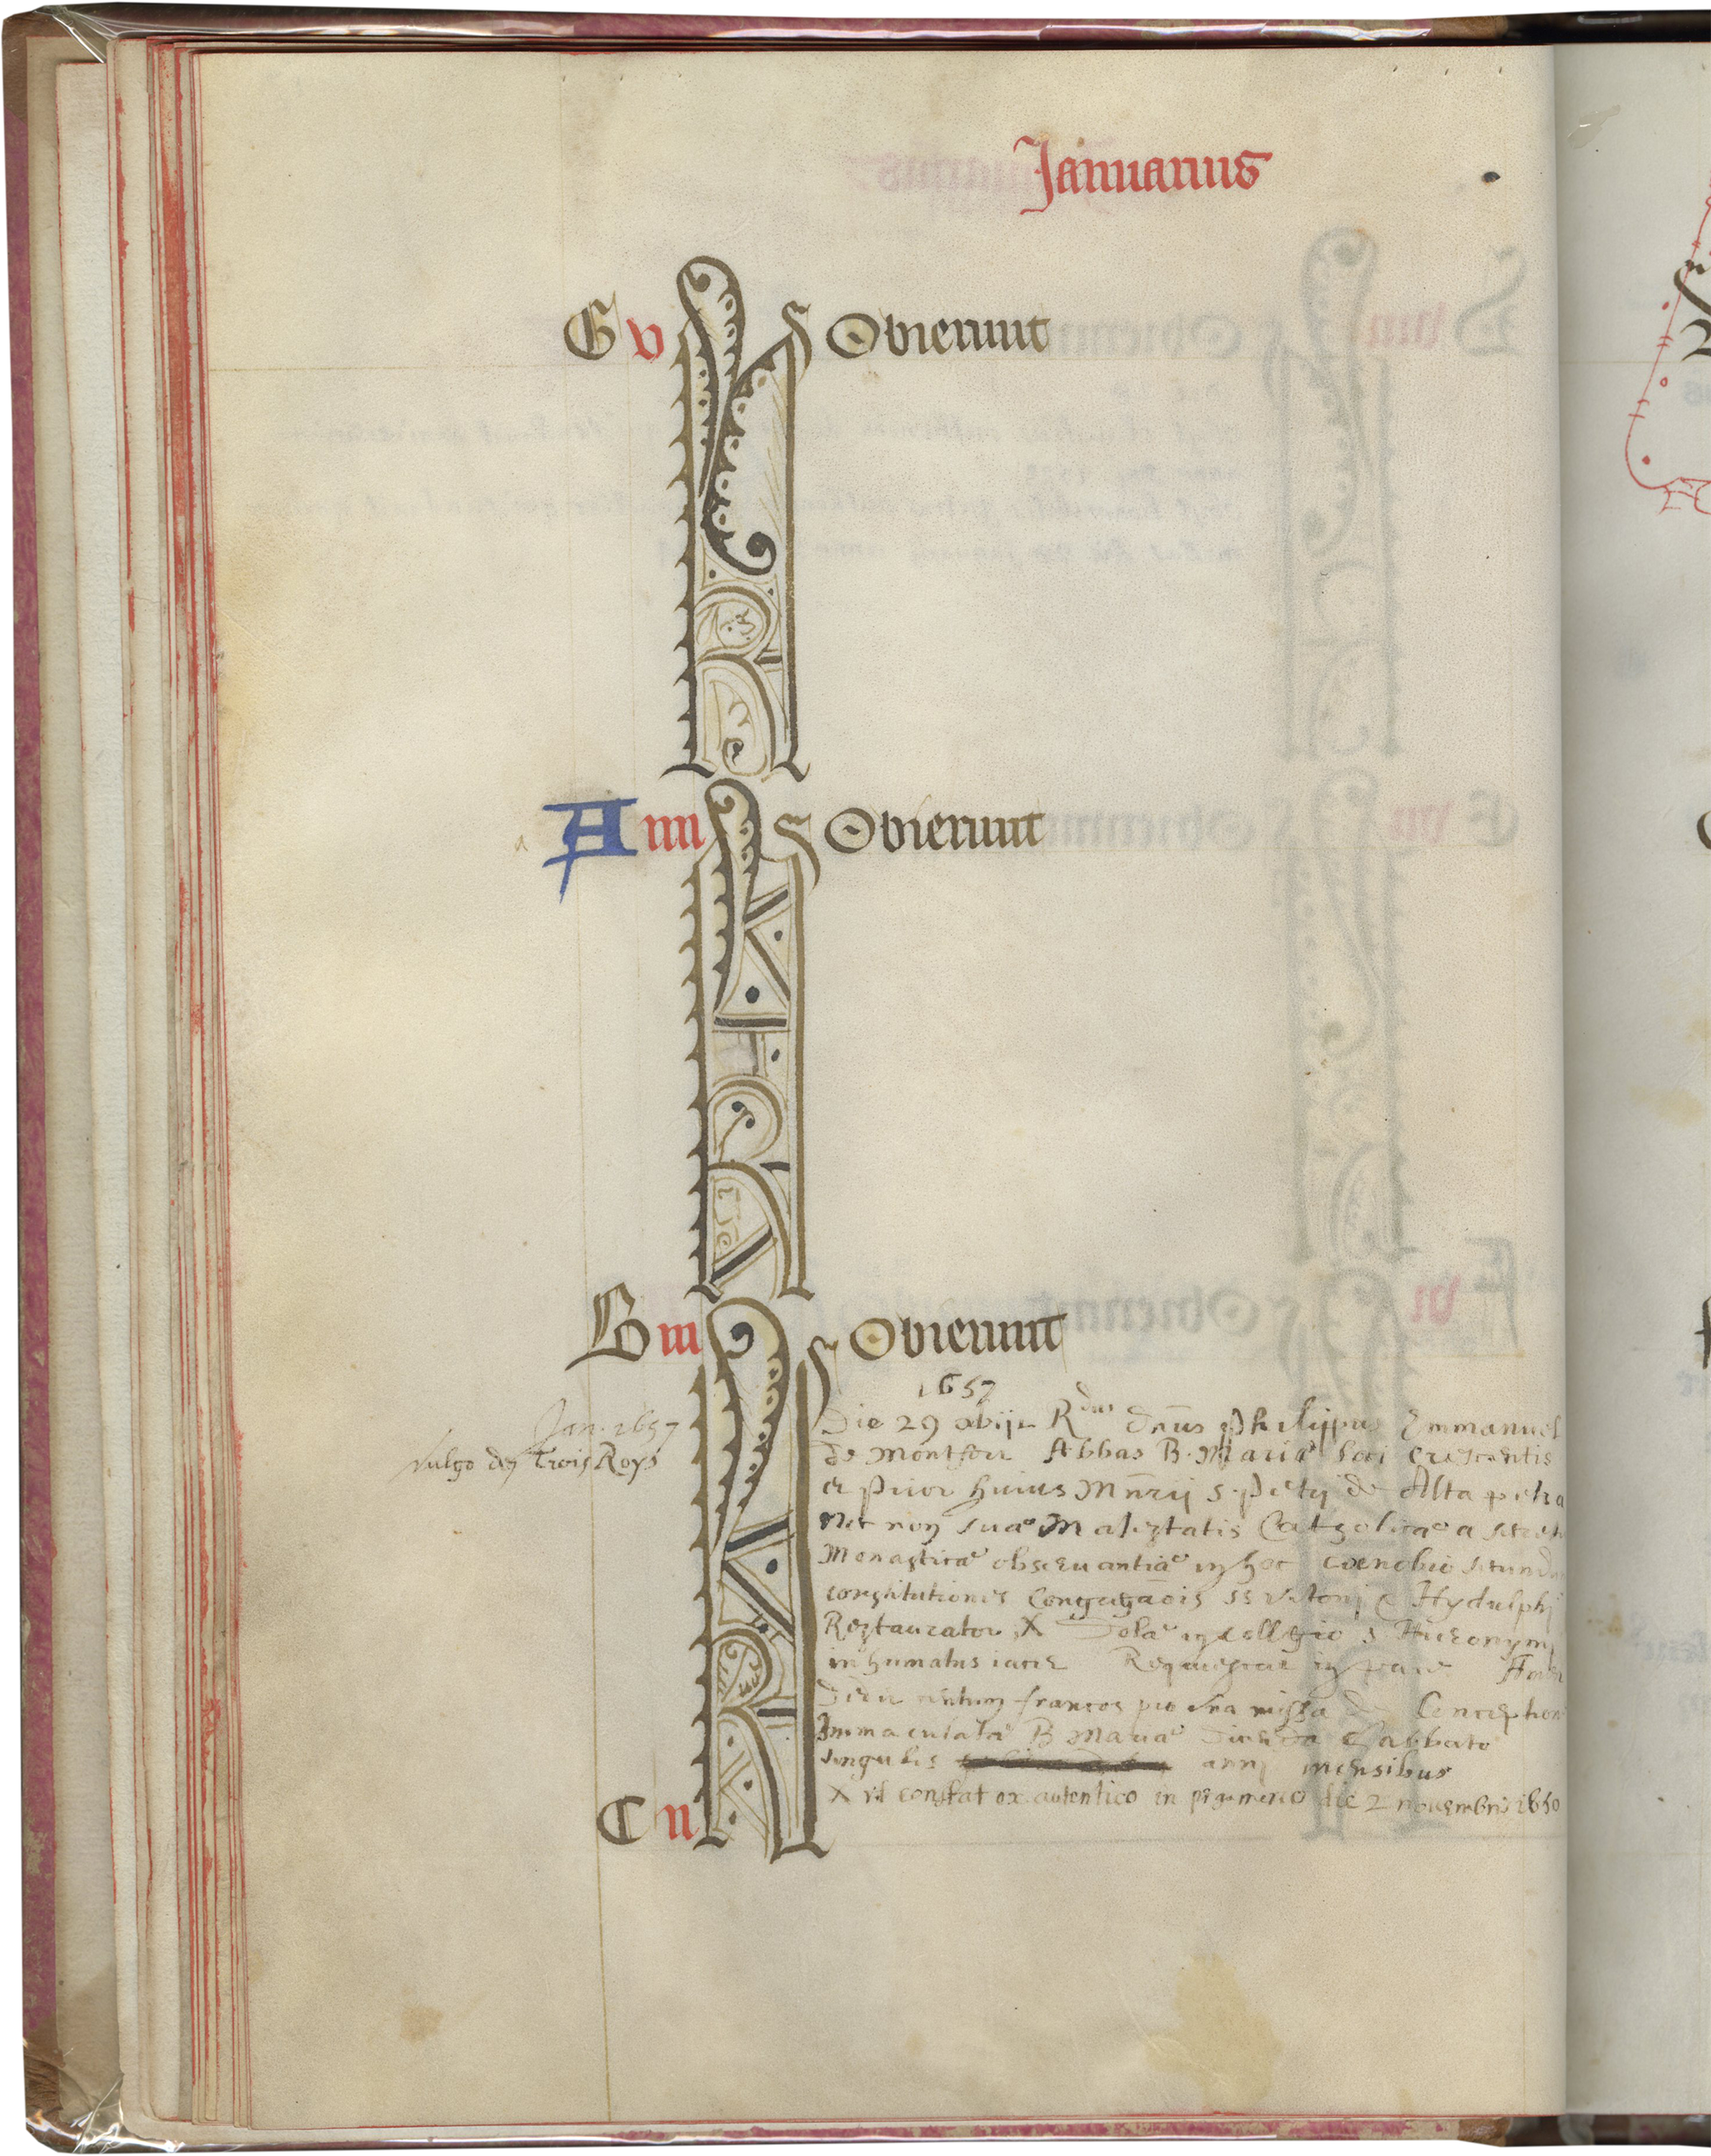 Januarius
G v KL Obierunt
A iiii KL Obierunt
B iii KL Obierunt
1657
Jan. 1657
vulgo des Trois Roys
Die 29 obijt Rdus Dnus Philippus Emmanuel
de Montfort Abbas B. Mariæ loci crescentis
et prior huius Mnrij s. petrj de Alta petra
Nec non suæ Majestatis Catholicæ a
Monasticæ obseruantiæ in hoc cœnobio
constitutiones Congregaois SS Vitonj & Hydulphj
Restaurator X Dolæ in collegio s. Hieronymj
inhumatus iacet Requiescat in pace
Dedit centum francos pro vna missa de Conception
Immaculatæ B Mariæ dicenda Sabbato
singulis annj mensibus
X vt constat ex autentico in pergameno die 2 nouembris 1650
C ii